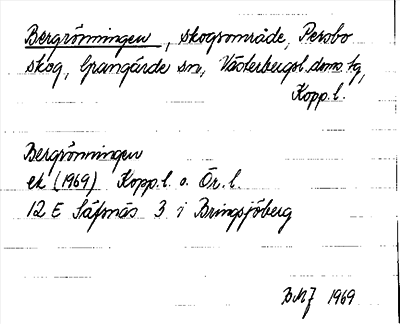 Bergrönningen, skogsområde, Persbo
skog, Grangärde sn, Västerbergsl. doms. tg,
Kopp. l.
Bergrönningen
ek (1969) Kopp. l. o. Ör. l.
12 E Säfsnäs 3 i Bringsjöberg
BMJ 1969